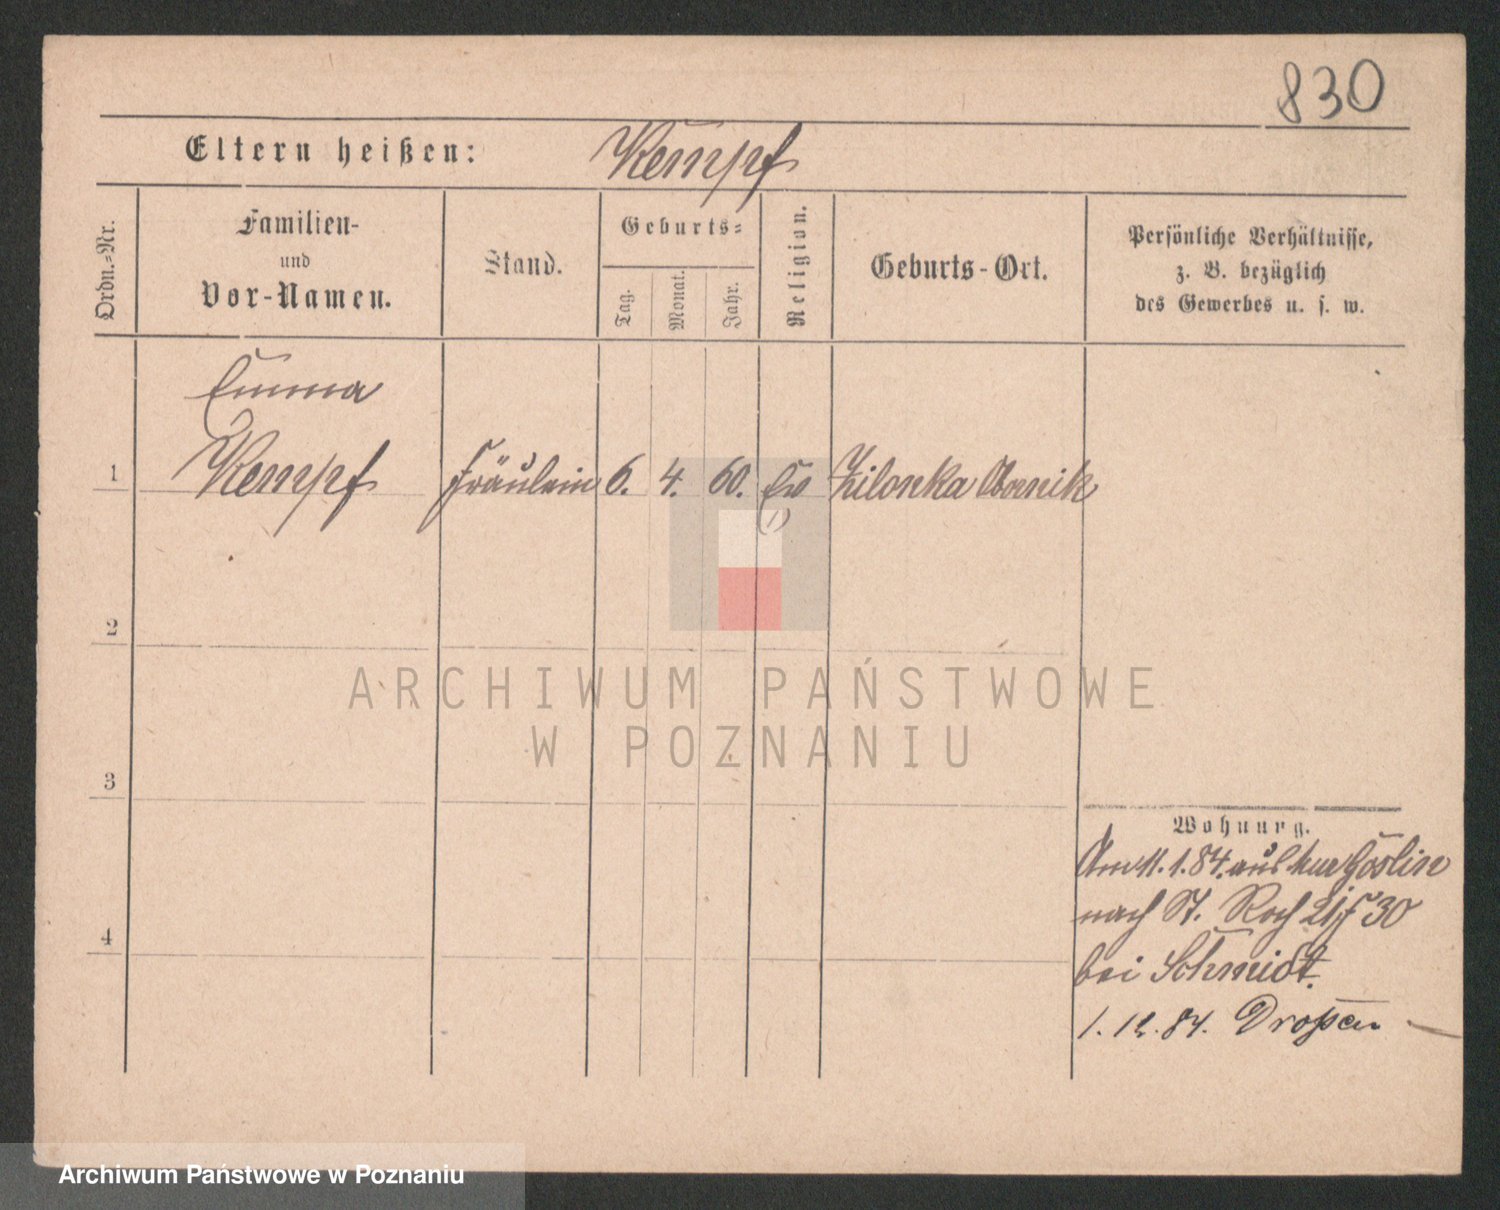 830
Eltern heißen: Kempf
Ordn.-Nr.
Familien-
und
Vor-Namen.
Stand.
Geburts-
Tag.
Monat.
Jahr.
Religion.
Geburts-Ort.
Persönliche Verhältnisse,
z. B. bezüglich
des Gewerbes u. s. w.
Emma
1 Kempf Fräulein 6. 4. 60. Ev Zilonka Obornik
2
3
4
Wohnung.
Am 11.1.84. aus Mur Goslin
nach St. Roch 30
bei Schmidt.
1.12.84. Droßen
ARCHIWUM PAŃSTWOWE
W POZNANIU
Archiwum Państwowe w Poznaniu